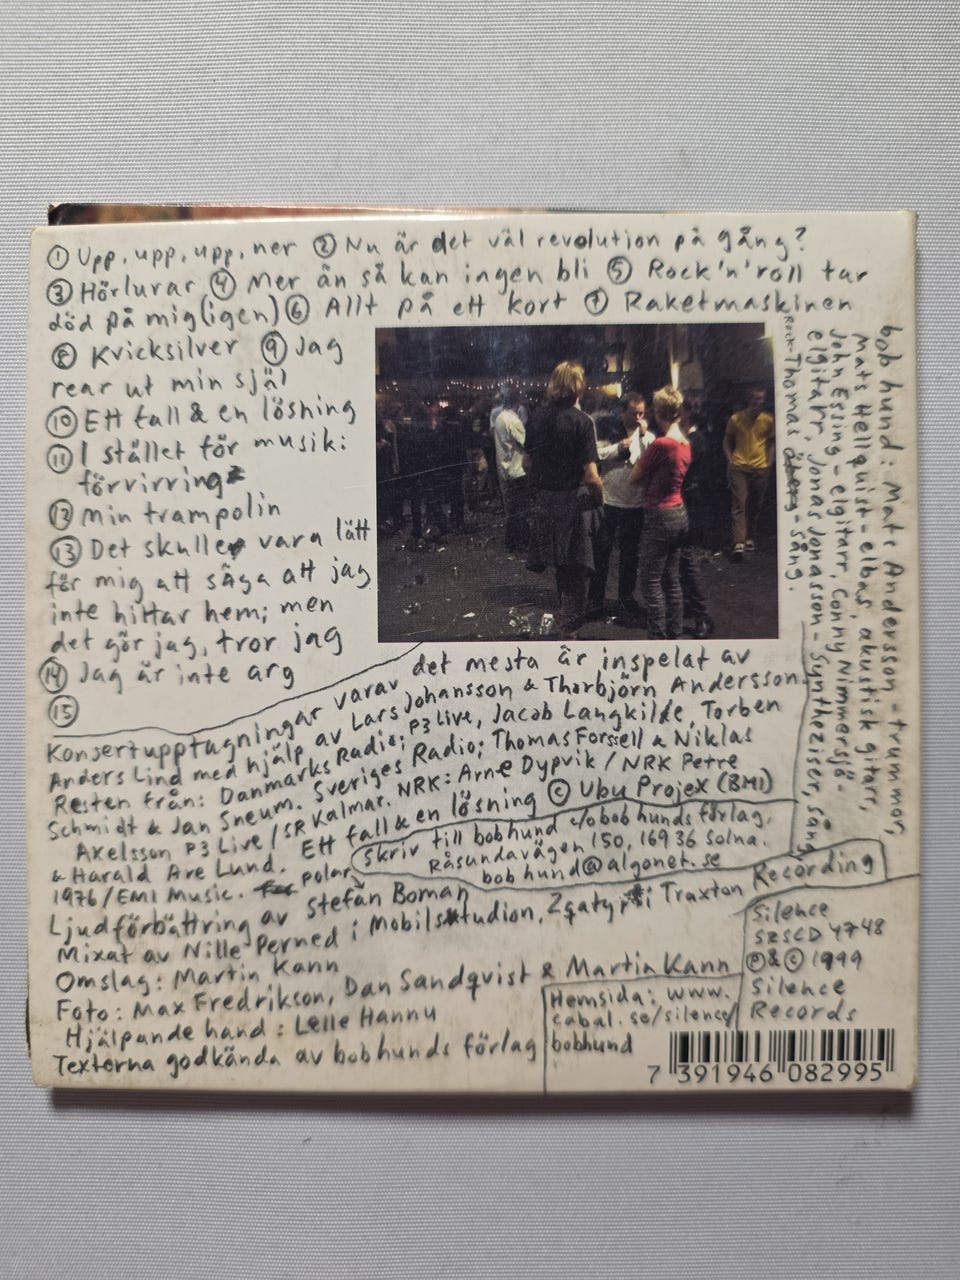 ① Upp, upp, upp, ner ② Nu är det väl revolution på gång?
③ Hörlurar ④ Mer än så kan ingen bli ⑤ Rock'n'roll tar
död på mig (igen) ⑥ Allt på ett kort ⑦ Raketmaskinen
⑧ Kvicksilver ⑨ Jag
rear ut min själ
⑩ Ett fall & en lösning
⑪ I stället för musik:
förvirring
⑫ Min trampolin
⑬ Det skulle vara lätt
för mig att säga att jag
inte hittar hem; men
det gör jag, tror jag
⑭ Jag är inte arg
⑮
bob hund: Mats Andersson - trummor,
Mats Hellquist - elbas, akustisk gitarr,
John Essing - elgitarr, Conny Nimmersjö -
elgitarr, Jonas Jonasson - Syntheziser, sång
Rock-Thomas Öberg - sång.
Konsertupptagningar varav det mesta är inspelat av
Anders Lind med hjälp av Lars Johansson & Thorbjörn Andersson.
Resten från: Danmarks Radio; P3 Live, Jacob Langkilde, Torben
Schmidt & Jan Sneum. Sveriges Radio; Thomas Forsell & Niklas
Axelsson P3 Live / SR Kalmar. NRK: Arne Dypvik / NRK Petre
& Harald Are Lund. Ett fall & en lösning © Ubu Projex (BMI)
1976/EMI Music.
Skriv till bob hund c/o bob hunds förlag,
Råsundavägen 150, 169 36 Solna.
bobhund@algonet.se
Ljudförbättring av Stefan Boman polar
Mixat av Nille Perned i Mobilstudion, Zgatyr i Traxton Recording
Omslag: Martin Kann
Foto: Max Fredrikson, Dan Sandqvist & Martin Kann
Hjälpande hand: Lelle Hannu
Texterna godkända av bob hunds förlag
Hemsida: www.
cabal.se/silence/
bobhund
Silence
SRSCD 4748
℗ & © 1999
Silence
Records
7 391946 082995